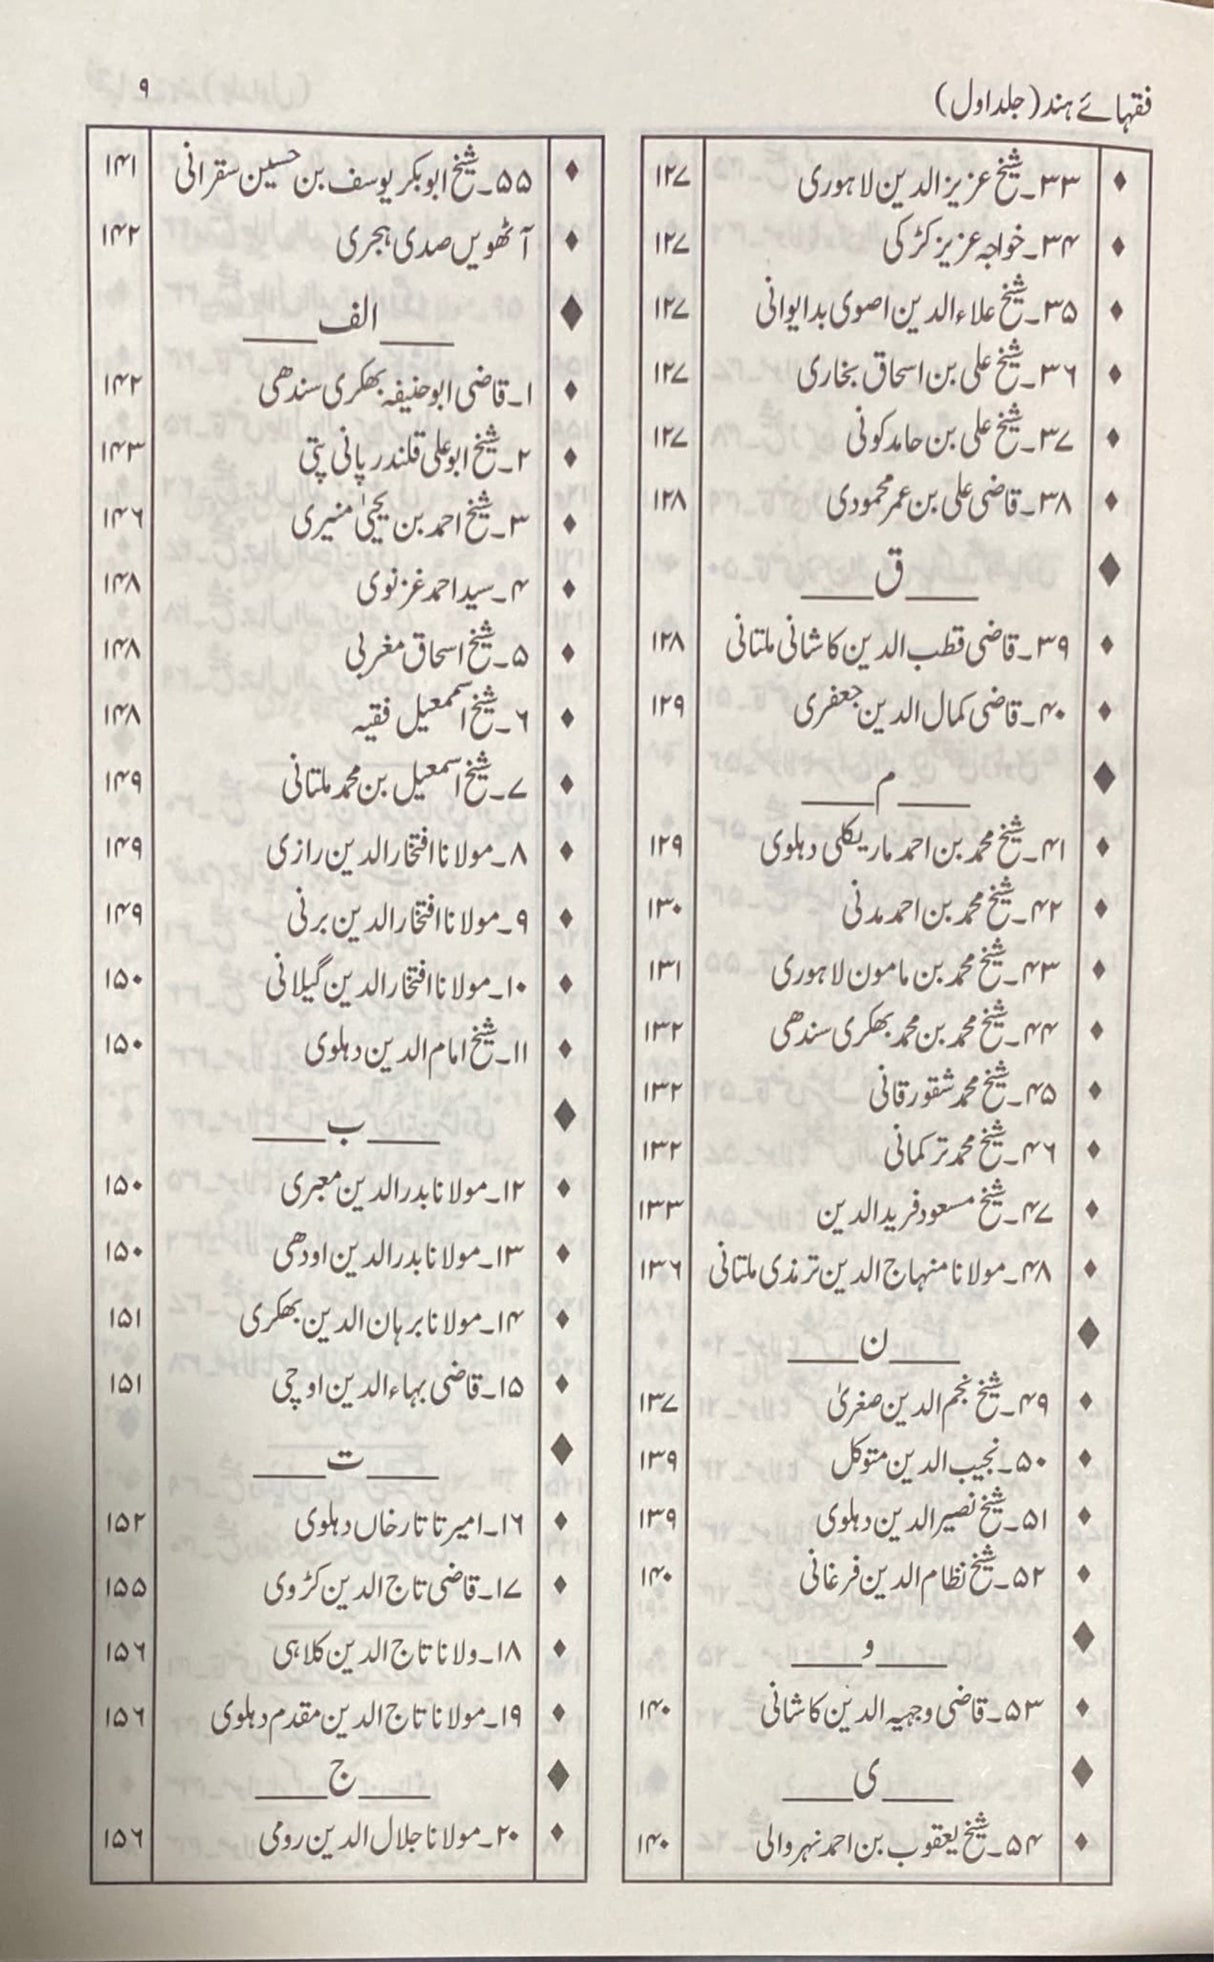 فقہائے ہند (جلد اول)
۹
۳۳۔ شیخ عزیز الدین لاہوری ۱۲۷
۳۴۔ خواجہ عزیز کڑکی ۱۲۷
۳۵۔ شیخ علاء الدین اصوی بدایوانی ۱۲۷
۳۶۔ شیخ علی بن اسحاق بخاری ۱۲۷
۳۷۔ شیخ علی بن حامد کوفی ۱۲۷
۳۸۔ قاضی علی بن عمر محمودی ۱۲۸
ق
۳۹۔ قاضی قطب الدین کاشانی ملتانی ۱۲۸
۴۰۔ قاضی کمال الدین جعفری ۱۲۹
م
۴۱۔ شیخ محمد بن احمد ماریکلی دہلوی ۱۲۹
۴۲۔ شیخ محمد بن احمد مدنی ۱۳۰
۴۳۔ شیخ محمد بن مامون لاہوری ۱۳۱
۴۴۔ شیخ محمد بن محمد بھکری سندھی ۱۳۲
۴۵۔ شیخ محمد شقورقانی ۱۳۲
۴۶۔ شیخ محمد ترکمانی ۱۳۲
۴۷۔ شیخ مسعود فرید الدین ۱۳۳
۴۸۔ مولانا منہاج الدین ترمذی ملتانی ۱۳۶
ن
۴۹۔ شیخ نجم الدین صغریٰ ۱۳۷
۵۰۔ نجیب الدین متوکل ۱۳۹
۵۱۔ شیخ نصیر الدین دہلوی ۱۳۹
۵۲۔ شیخ نظام الدین فرغانی ۱۴۰
و
۵۳۔ قاضی وجہیہ الدین کاشانی ۱۴۰
ی
۵۴۔ شیخ یعقوب بن احمد نہروالی ۱۴۰
۵۵۔ شیخ ابوبکر یوسف بن حسین سقرانی ۱۴۱
آٹھویں صدی ہجری ۱۴۲
الف
۱۔ قاضی ابوحنیفہ بھکری سندھی ۱۴۲
۲۔ شیخ ابوعلی قلندر پانی پتی ۱۴۳
۳۔ شیخ احمد بن یحییٰ منیری ۱۴۶
۴۔ سید احمد غزنوی ۱۴۸
۵۔ شیخ اسحاق مغربی ۱۴۸
۶۔ شیخ اسمٰعیل فقیہ ۱۴۸
۷۔ شیخ اسمٰعیل بن محمد ملتانی ۱۴۹
۸۔ مولانا افتخار الدین رازی ۱۴۹
۹۔ مولانا افتخار الدین برنی ۱۴۹
۱۰۔ مولانا افتخار الدین گیلانی ۱۵۰
۱۱۔ شیخ امام الدین دہلوی ۱۵۰
ب
۱۲۔ مولانا بدر الدین معبری ۱۵۰
۱۳۔ مولانا بدر الدین اودھی ۱۵۰
۱۴۔ مولانا برہان الدین بھکری ۱۵۱
۱۵۔ قاضی بہاء الدین اوچی ۱۵۱
ت
۱۶۔ امیر تاتار خاں دہلوی ۱۵۲
۱۷۔ قاضی تاج الدین کڑوی ۱۵۵
۱۸۔ ولانا تاج الدین کلاہی ۱۵۶
۱۹۔ مولانا تاج الدین مقدم دہلوی ۱۵۶
ج
۲۰۔ مولانا جلال الدین رومی ۱۵۶